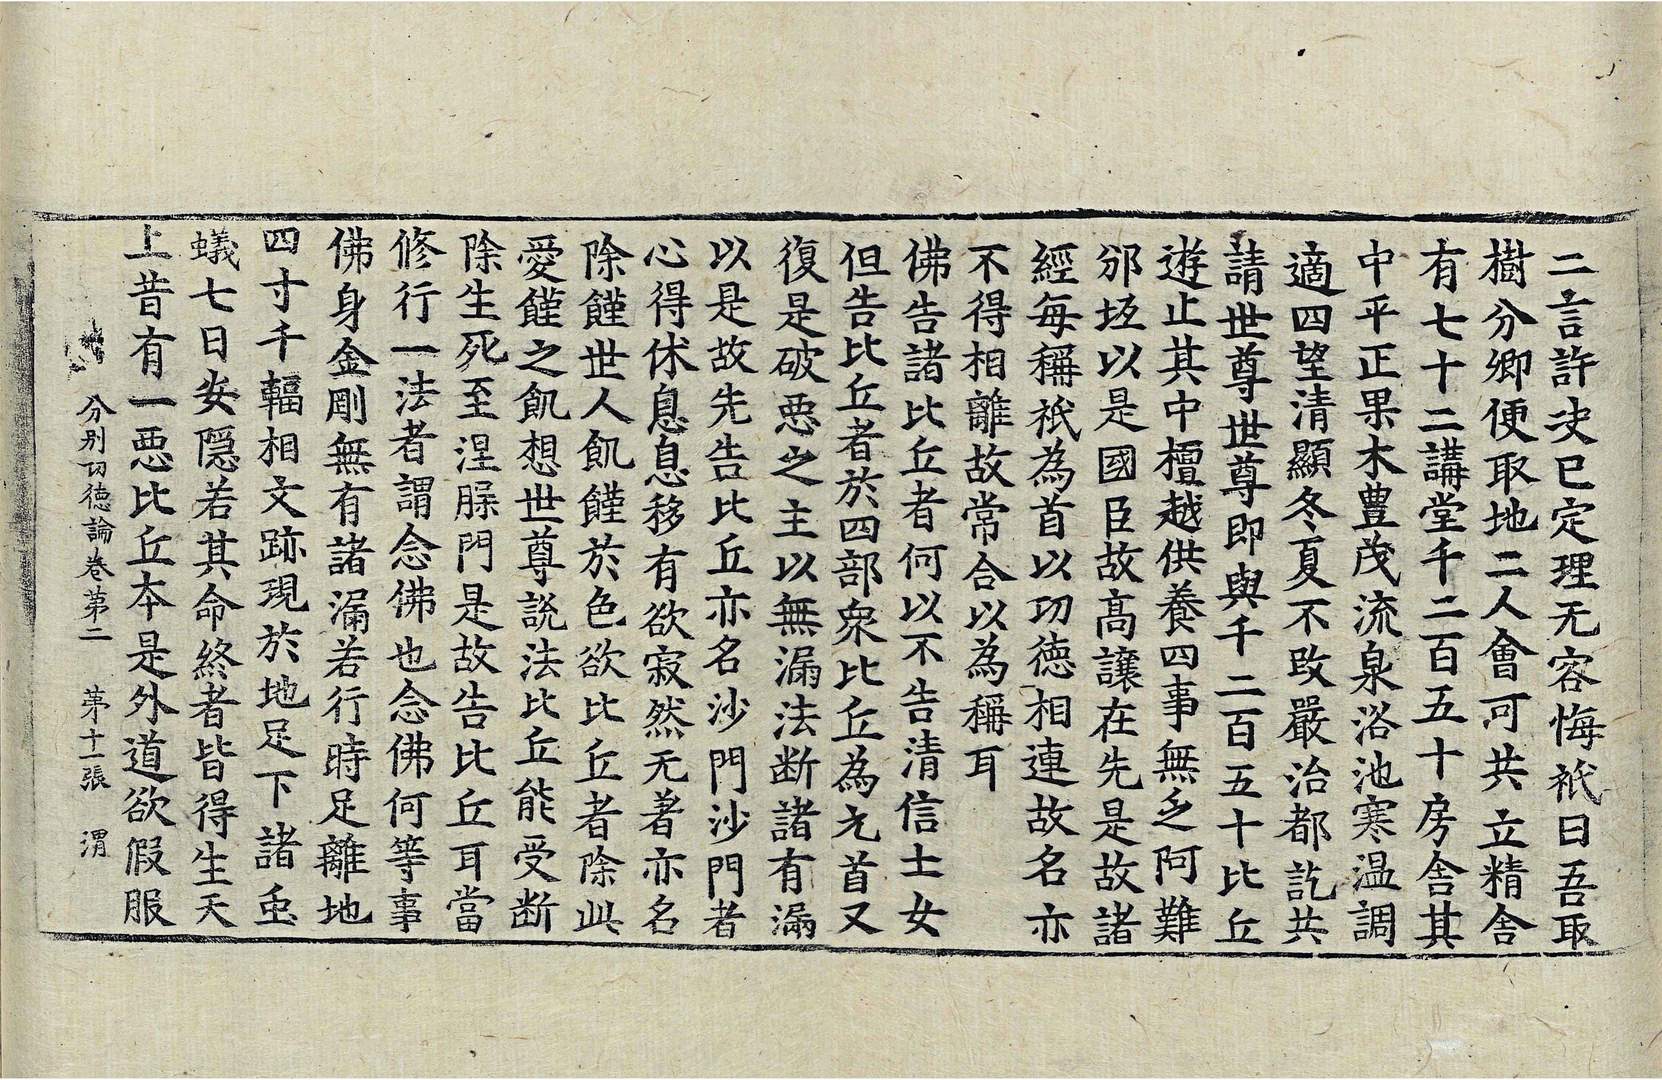 二言許决已定理无容悔祇曰吾取
樹分卿便取地二人會可共立精舍
有七十二講堂千二百五十房舍其
中平正果木豊茂流泉浴池寒温調
適四望清顯冬夏不改嚴治都訖共
請世尊世尊即與千二百五十比丘
遊止其中檀越供養四事無乏阿難
邠坻以是國臣故高讓在先是故諸
經每稱祇為首以功徳相連故名亦
不得相離故常合以為稱耳
佛告諸比丘者何以不告清信士女
但告比丘者於四部衆比丘為元首又
復是破惡之主以無漏法断諸有漏
以是故先告比丘亦名沙門沙門者
心得休息息移有欲寂然无著亦名
除饉世人飢饉於色欲比丘者除此
愛饉之飢想世尊說法比丘能受断
除生死至涅䐗門是故告比丘耳當
修行一法者謂念佛也念佛何等事
佛身金剛無有諸漏若行時足離地
四寸千輻相文跡現於地足下諸䖝
蟻七日安隠若其命終者皆得生天
上昔有一惡比丘本是外道欲假服
分别功徳論卷第二　第十一張　渭